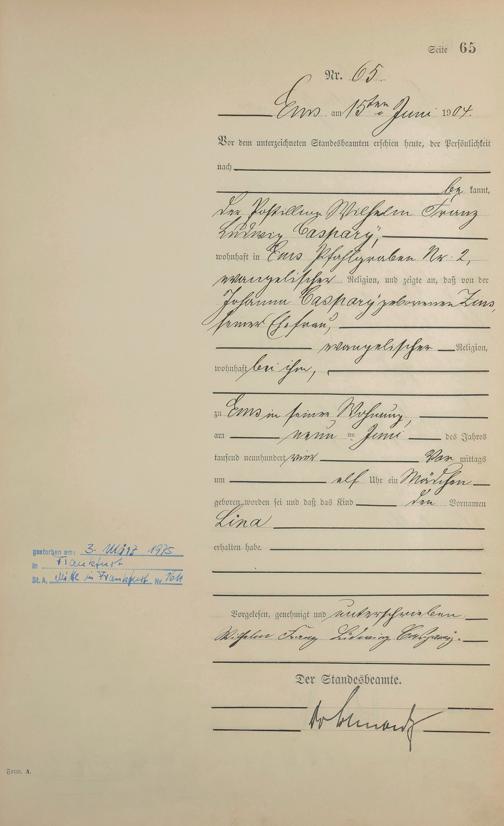 Seite 65
Nr. 65
Ems am 15ten Juni 1904.
Vor dem unterzeichneten Standesbeamten erschien heute, der Persönlichkeit
nach
be kannt,
der Postillion Wilhelm Franz
Ludwig Caspary,
wohnhaft in Ems Pfahlgraben Nr. 2,
evangelischer Religion, und zeigte an, daß von der
Johanna Caspary geborenen
seiner Ehefrau,
evangelischer Religion,
wohnhaft bei ihm,
zu Ems in seiner Wohnung,
am neun ten Juni des Jahres
tausend neunhundert vier Vor mittags
um elf Uhr ein Mädchen
geboren worden sei und daß das Kind den Vornamen
Lina
erhalten habe.
gestorben am: 3. März 1975
in Frankfurt
St. A. Mitte in Frankfurt Nr.
Vorgelesen, genehmigt und unterschrieben
Wilhelm Franz Ludwig Caspary.
Der Standesbeamte.
Form. A.